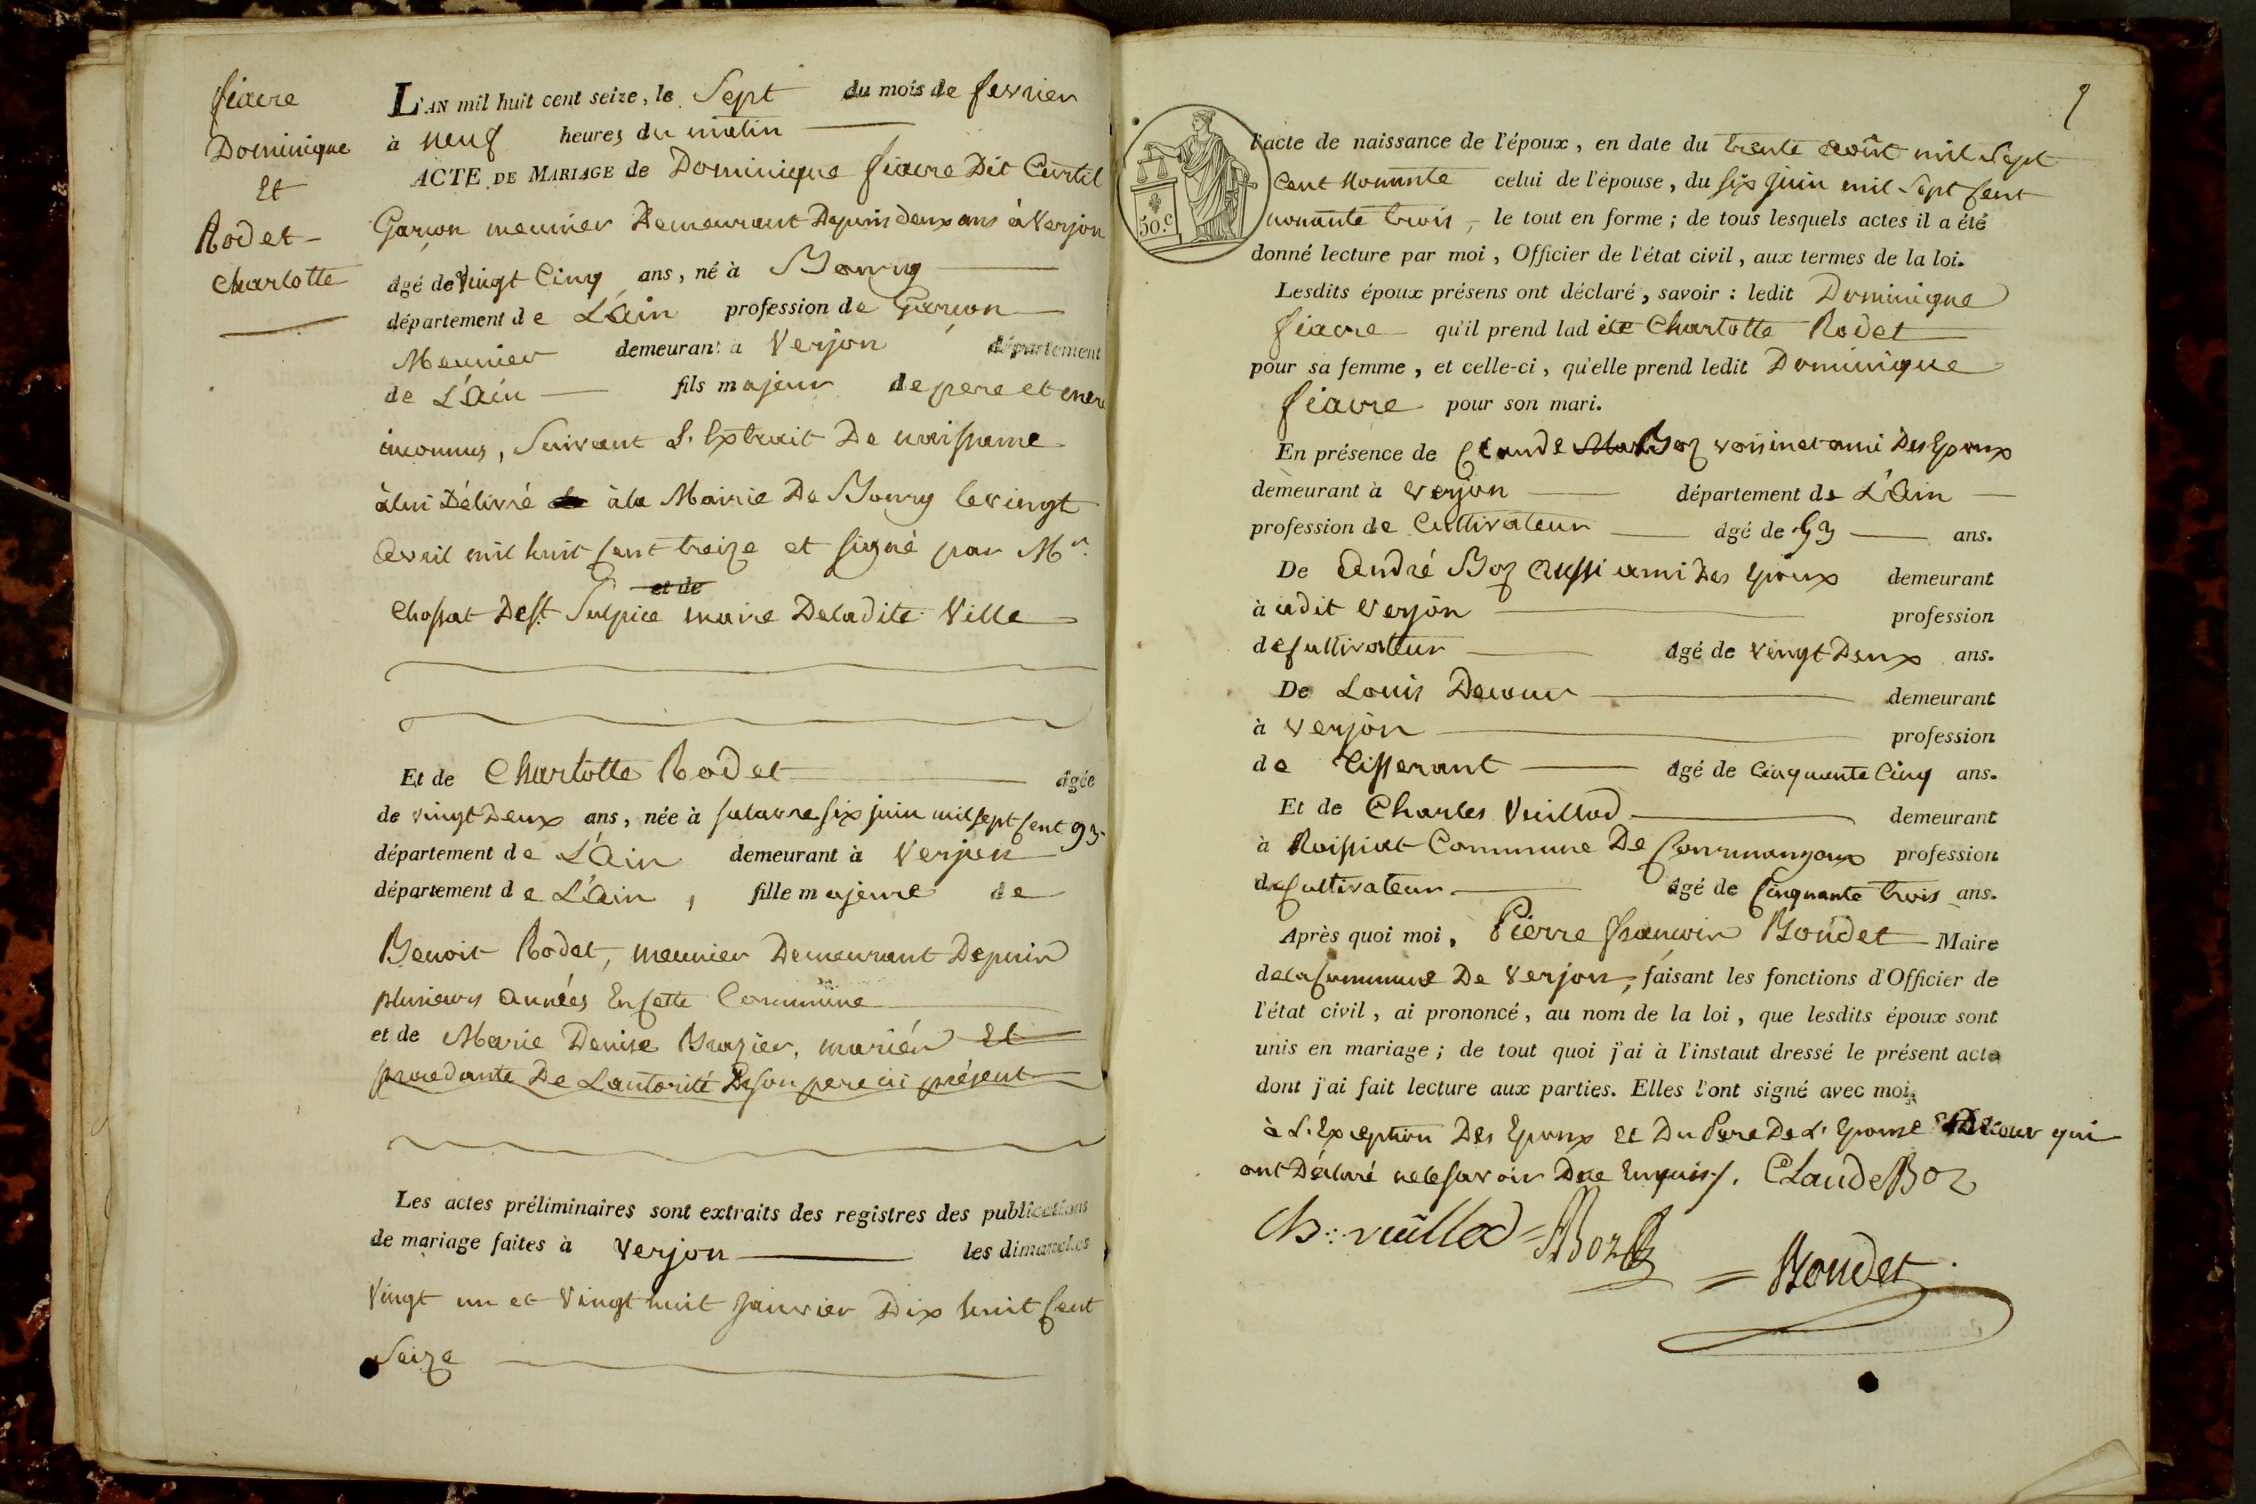 fiacre
Dominique
Et
Rodet
Charlotte
L'AN mil huit cent seize, le Sept du mois de fevrier
à neuf heures du matin
ACTE DE MARIAGE de Dominique fiacre Dit Curtil
Garcon meunier Demeurant Depuis deux ans à Verjon
âgé de Vingt Cinq ans, né à Bourg
département de L'Ain profession de Garcon
Meunier demeurant à Verjon département
de L'Ain fils majeur de pere et mere
inconnus, Suivant L'Extrait De naissance
à lui Délivré à la Mairie De Bourg le vingt
Avril mil huit Cent treize et signé par Mr.
et de
Chossat De St. Sulpice maire De ladite Ville
Et de Charlotte Rodet âgée
de vingt Deux ans, née à salavre six juin mil sept Cent 93
département de L'Ain demeurant à Verjon
département de L'Ain, fille majeure de
Benoit Rodet, meunier Demeurant Depuis
plusieurs Années En Cette Commune
et de Marie Denise Brazier, mariés Et
procedante De L'autorité De son pere ici présent
Les actes préliminaires sont extraits des registres des publications
de mariage faites à Verjon les dimanches
Vingt un et Vingt huit Janvier Dix huit Cent
Seize
50.c
l'acte de naissance de l'époux, en date du trente août mil Sept
Cent Nonante celui de l'épouse, du six Juin mil Sept Cent
nonante trois, le tout en forme; de tous lesquels actes il a été
donné lecture par moi, Officier de l'état civil, aux termes de la loi.
Lesdits époux présens ont déclaré, savoir: ledit Dominique
fiacre qu'il prend lad ite Charlotte Rodet
pour sa femme, et celle-ci, qu'elle prend ledit Dominique
fiacre pour son mari.
En présence de Claude Boz voisin et ami Des Epoux
demeurant à Verjon département de L'Ain
profession de Cultivateur âgé de 53 ans.
De André Boz Aussi ami Des Epoux demeurant
à udit Verjon profession
de Cultivateur âgé de vingt Deux ans.
De Louis Decour demeurant
à Verjon profession
de Tisserant âgé de Cinquante Cinq ans.
Et de Charles Vuillod demeurant
à Roissiat Commune De Courmangoux profession
de Cultivateur âgé de Cinquante trois ans.
Après quoi moi, Pierre francois Boudet Maire
de la Commune De Verjon, faisant les fonctions d'Officier de
l'état civil, ai prononcé, au nom de la loi, que lesdits époux sont
unis en mariage; de tout quoi j'ai à l'instaut dressé le présent acte
dont j'ai fait lecture aux parties. Elles l'ont signé avec moi,
à L'Exception Des Epoux Et Du Pere De L'Epouse Decour qui
ont Déclaré ne le savoir De ce Enquis. Claude Boz
Ch: vuillod ABoz
Boudet